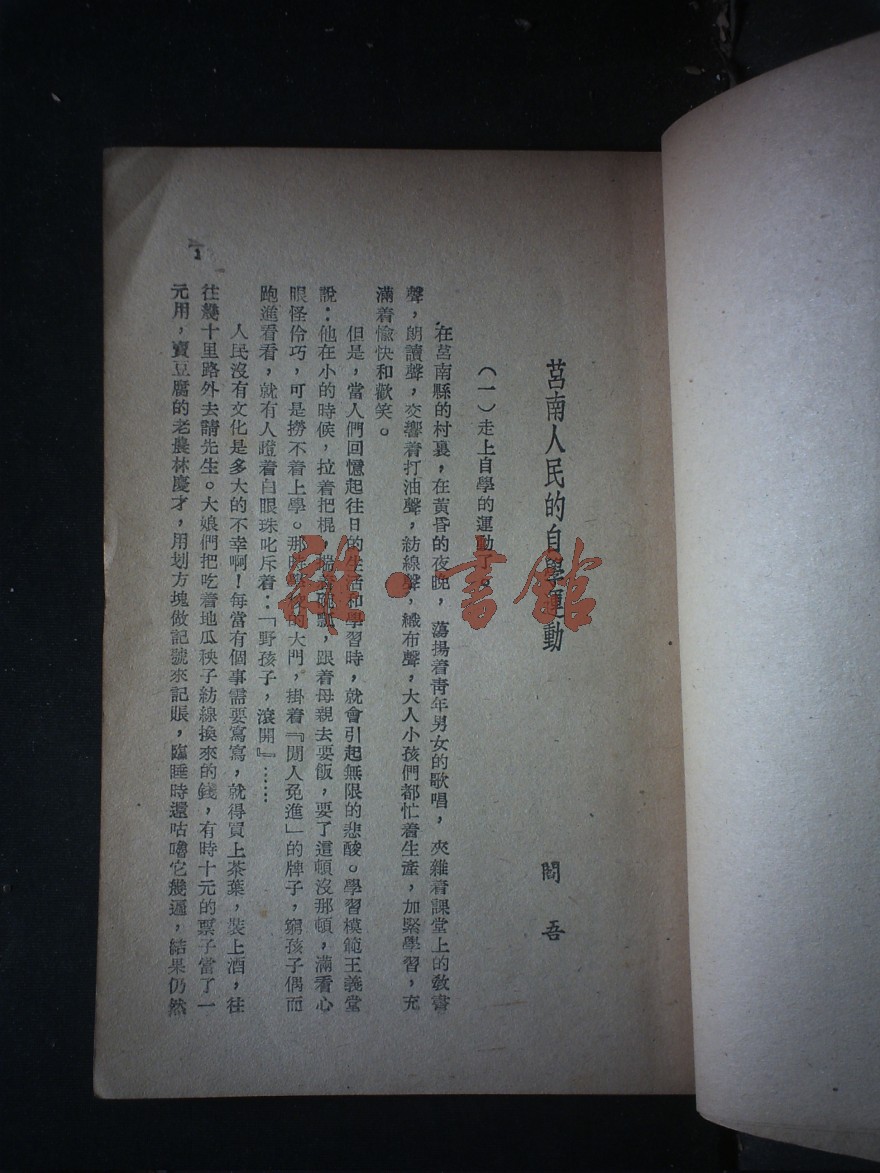 莒南人民的自學運動
閻吾
（一）走上自學的運動了。
在莒南縣的村裏，在黃昏的夜晚，蕩揚着青年男女的歌唱，夾雜着課堂上的教書
聲，朗讀聲，交響着打油聲，紡線聲，織布聲，大人小孩們都忙着生產，加緊學習，充
滿着愉快和歡笑。
但是，當人們回憶起往日的生活和學習時，就會引起無限的悲酸。學習模範王義堂
說：他在小的時候，拉着把棍，端着碗瓢，跟着母親去要飯，要了這頓沒那頓，滿看心
眼怪伶巧，可是撈不着上學。那時的大門，掛着『閒人免進」的牌子，窮孩子偶而
跑進看看，就有人瞪着白眼珠叱斥着：「野孩子，滾開』……
人民沒有文化是多大的不幸啊！每當有個事需要寫寫，就得買上茶葉，裝上酒，往
往幾十里路外去請先生。大娘們把吃着地瓜秧子紡線換來的錢，有時十元的票子當了一
元用，賣豆腐的老農林慶才，用划方塊做記號來記賬，臨睡時還咕嚕它幾遍，結果仍然
1
雜·書館